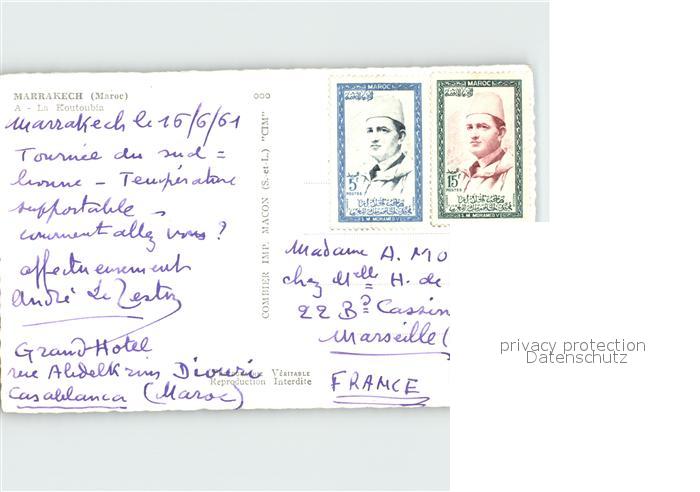 MARRAKECH (Maroc)
A - La Koutoubia
Marrakech le 16/6/61
Tournée du sud =
bonne - Température
supportable -
comment allez vous?
affectueusement
André
Grand Hotel
rue Abdelkrim Diouri
Casablanca (Maroc)
COMBIER IMP. MACON (S.-et-L.) "CIM"
VÉRITABLE
Reproduction Interdite
MAROC
5F
POSTES
S.M. MOHAMED V
MAROC
15F
POSTES
S.M. MOHAMED V
Madame A. Mo
chez Melle H. de
22 Bd Cassin
Marseille (
FRANCE
privacy protection
Datenschutz